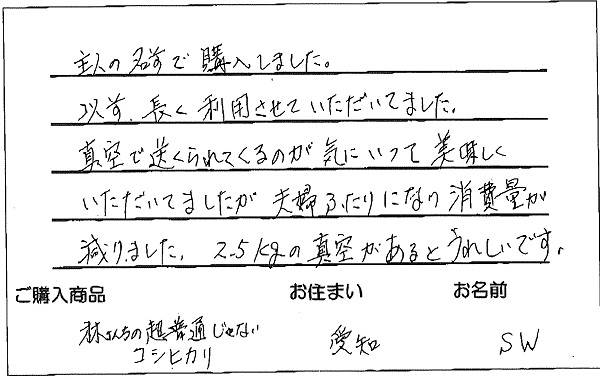 主人の名前で購入しました。
以前、長く利用させていただいてました。
真空で送くられてくるのが気にいって美味しく
いただいてましたが夫婦ふたりになり消費量が
減りました。2.5kgの真空があるとうれしいです。
ご購入商品 お住まい お名前
林さんちの超普通じゃない 愛知 SW
コシヒカリ